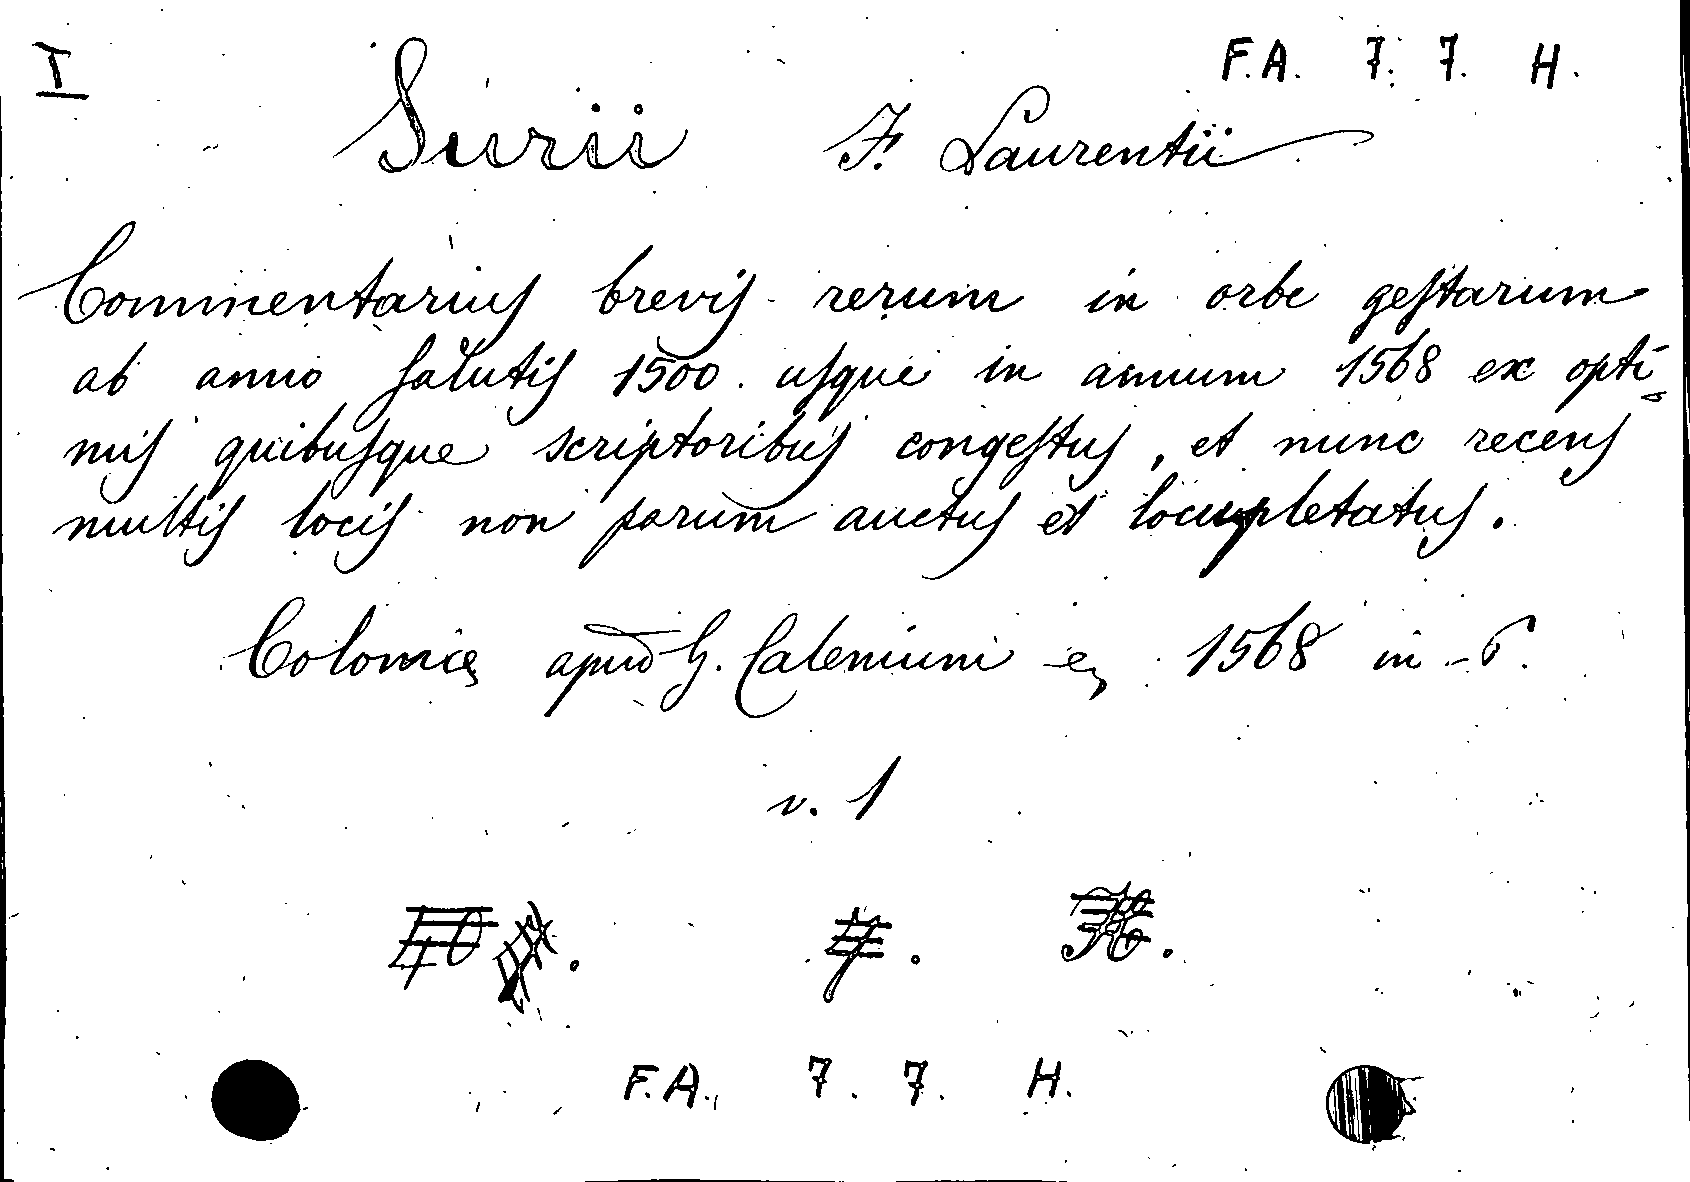 I F.A. 7. 7. H.
Surii F. Laurentii
Commentarius brevis rerum in orbe gestarum
ab anno salutis 1500. usque in annum 1568 ex opti-
mis quibusque scriptoribus congestus, et nunc recens
multis locis non parum auctus et locupletatus.
Coloniæ apud G. Calenium 1568 in-8.
v. 1
F.A. 7. 7. H.